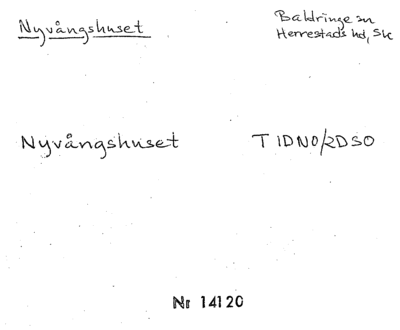 Nyvångshuset
Baldringe sn
Herrestads hd, Sk
Nyvångshuset
T 1DNO/2DSO
Nr 14120